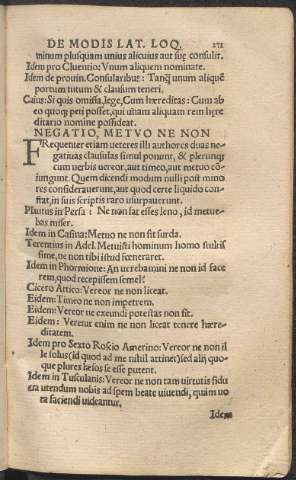 DE MODIS LAT. LOQ. 272
minum plusquam unius alicuius aut suę consulit.
Idem pro Cluentio: Vnum aliquem nominate.
Idem de prouin. Consularibus: Tanq̃ unum aliquẽ
portum tutum & clausum teneri.
Caius: Si quis omissa, lege, Cum hæreditas: Cum ab
eo quoq; peti posset, qui unam aliquam rem hære
ditario nomine possideat.
NEGATIO, METVO NE NON
FRequenter etiam ueteres illi authores duas ne-
gatiuas clausulas simul ponunt, & plerunq;
cum uerbis uereor, aut timeo, aut metuo cõ
iungunt. Quem dicendi modum nulli post mino
res considerauerunt, aut quod certe liquido con-
stat, in suis scriptis raro usurpauerunt.
Plautus in Persa: Ne non sat esses leno, id metue-
bas miser.
Idem in Casina: Metuo ne non sit surda.
Terentius in Adel. Metuisti hominum homo stultis
sime, ne non tibi istud fœneraret.
Idem in Phormione: An uerebamini ne non id face
rem, quod recepissem semel?
Cicero Attico: Vereor ne non liceat.
Eidem: Timeo ne non impetrem.
Eidem: Vereor ne exeundi potestas non sit.
Eidem: Veretur enim ne non liceat tenere hære-
ditatem.
Idem pro Sexto Roscio Amerino: Vereor ne non il
le solus (id quod ad me nihil attinet) sed alij quo-
que plures læsos se esse putent.
Idem in Tusculanis: Vereor ne non tam uirtutis fidu
cia utendum nobis ad spem beate uiuendi, quàm uo
ta faciendi uideantur.
Idem